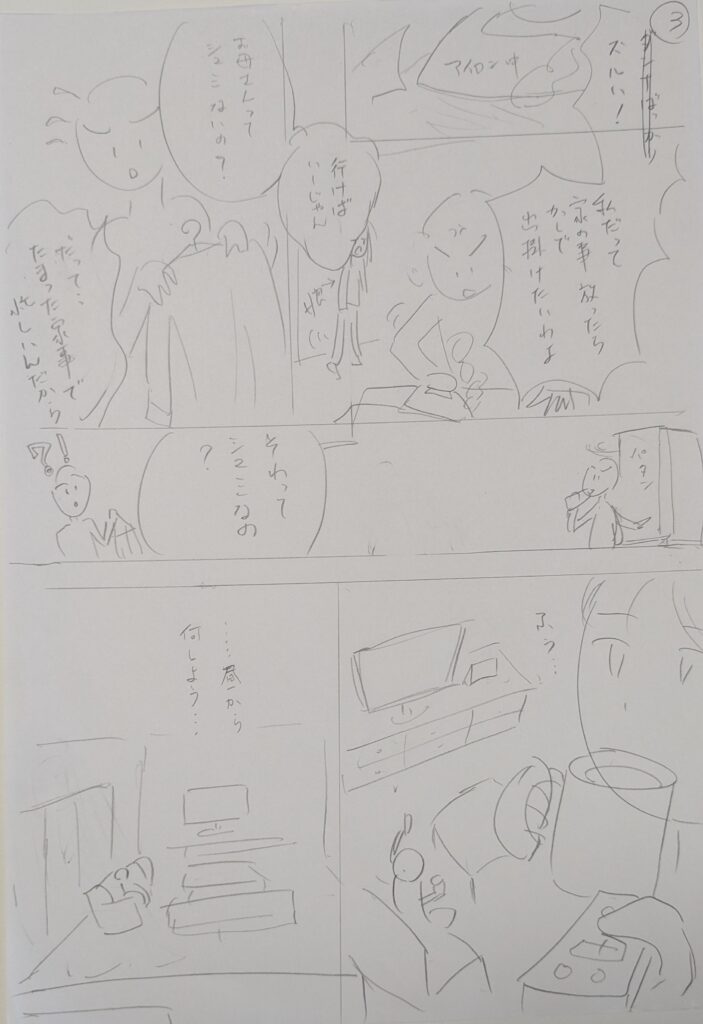 3
ズルい!
アイロン中
私だって
家の事 放ったら
かしで
出掛けたいわよ
行けば
いーじゃん
娘→
お母さんって
シュミないの?
だって‥
たまった家事で
忙しいんだから
パタン
それって
シュミなの
?
?!
ふぅ…
……昼から
何しよう…